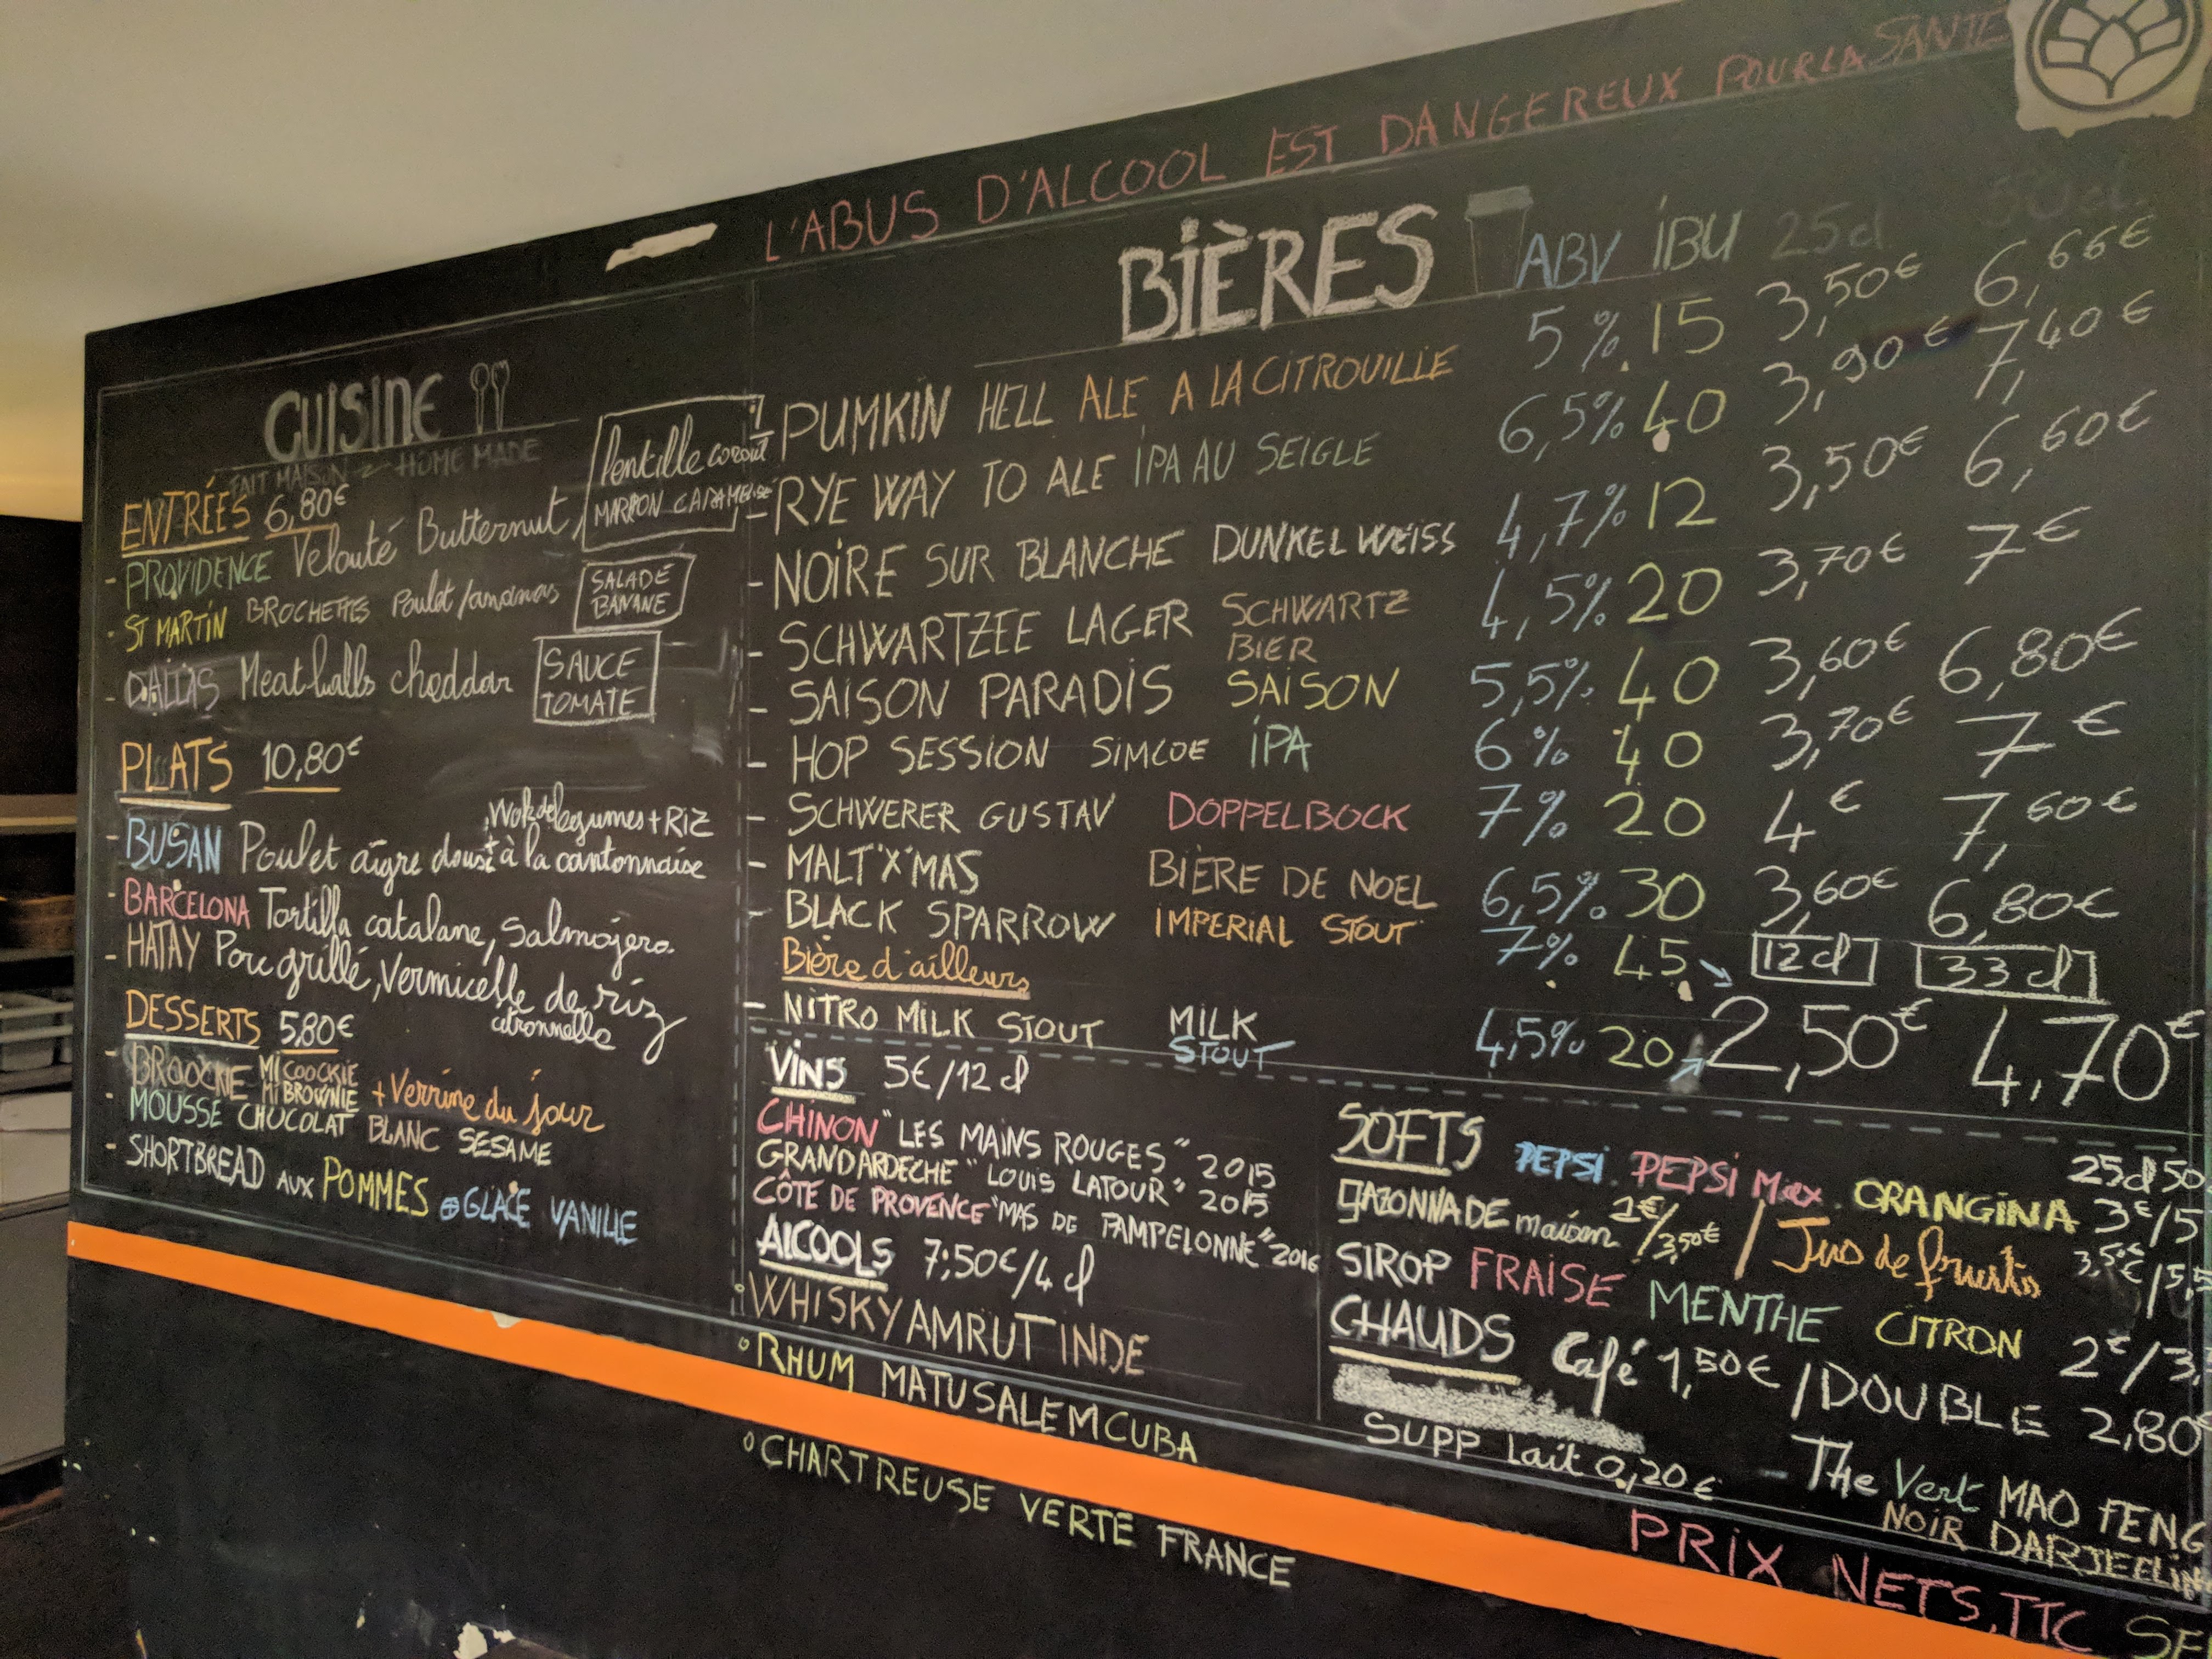 L'ABUS D'ALCOOL EST DANGEREUX POUR LA SANTE
CUISINE
FAIT MAISON HOME MADE
ENTRÉES 6,80€
- PROVIDENCE Velouté Butternut, lentille corail
MARRON CARAMELISÉ
- ST MARTIN BROCHETTES Poulet/ananas SALADE BANANE
- DALLAS Meatballs cheddar SAUCE TOMATE
PLATS 10,80€
- BUSAN Poulet aigre doux à la cantonnaise
Wok de legumes + RIZ
- BARCELONA Tortilla catalane, Salmojero
- HATAY Porc grillé, Vermicelle de riz
citronnelle
DESSERTS 5,80€
- BROOCKIE MI COOCKIE MI BROWNIE + Verrine du jour
- MOUSSE CHOCOLAT BLANC SESAME
- SHORTBREAD AUX POMMES GLACE VANILLE
BIÈRES ABV IBU 25cl 50cl
- PUMKIN HELL ALE A LA CITROUILLE 5% 15 3,50€ 6,66€
- RYE WAY TO ALE IPA AU SEIGLE 6,5% 40 3,90€ 7,40€
- NOIRE SUR BLANCHE DUNKEL WEISS 4,7% 12 3,50€ 6,60€
- SCHWARTZEE LAGER SCHWARTZ BIER 4,5% 20 3,70€ 7€
- SAISON PARADIS SAISON 5,5% 40 3,60€ 6,80€
- HOP SESSION SIMCOE IPA 6% 40 3,70€ 7€
- SCHWERER GUSTAV DOPPELBOCK 7% 20 4€ 7,60€
- MALT'X'MAS BIÈRE DE NOEL 6,5% 30 3,60€ 6,80€
- BLACK SPARROW IMPERIAL STOUT 7% 45 12cl 33cl
Bière d'ailleurs
- NITRO MILK STOUT MILK STOUT 4,5% 20 2,50€ 4,70€
VINS 5€/12cl
CHINON "LES MAINS ROUGES" 2015
GRAND ARDECHE "LOUIS LATOUR" 2015
CÔTE DE PROVENCE "MAS DE PAMPELONNE" 2016
ALCOOLS 7,50€/4cl
° WHISKY AMRUT INDE
° RHUM MATUSALEM CUBA
° CHARTREUSE VERTE FRANCE
SOFTS 25cl 50
PEPSI. PEPSI Max. ORANGINA 3€/5
GAZONNADE maison 2€/3,50€ / Jus de fruits 3,5€/5,5
SIROP FRAISE MENTHE CITRON 2€/3,
CHAUDS Café 1,50€ / DOUBLE 2,80€
SUPP Lait 0,20€ - The Vert MAO FENG
NOIR DARJEELIN
PRIX NETS, TTC SE